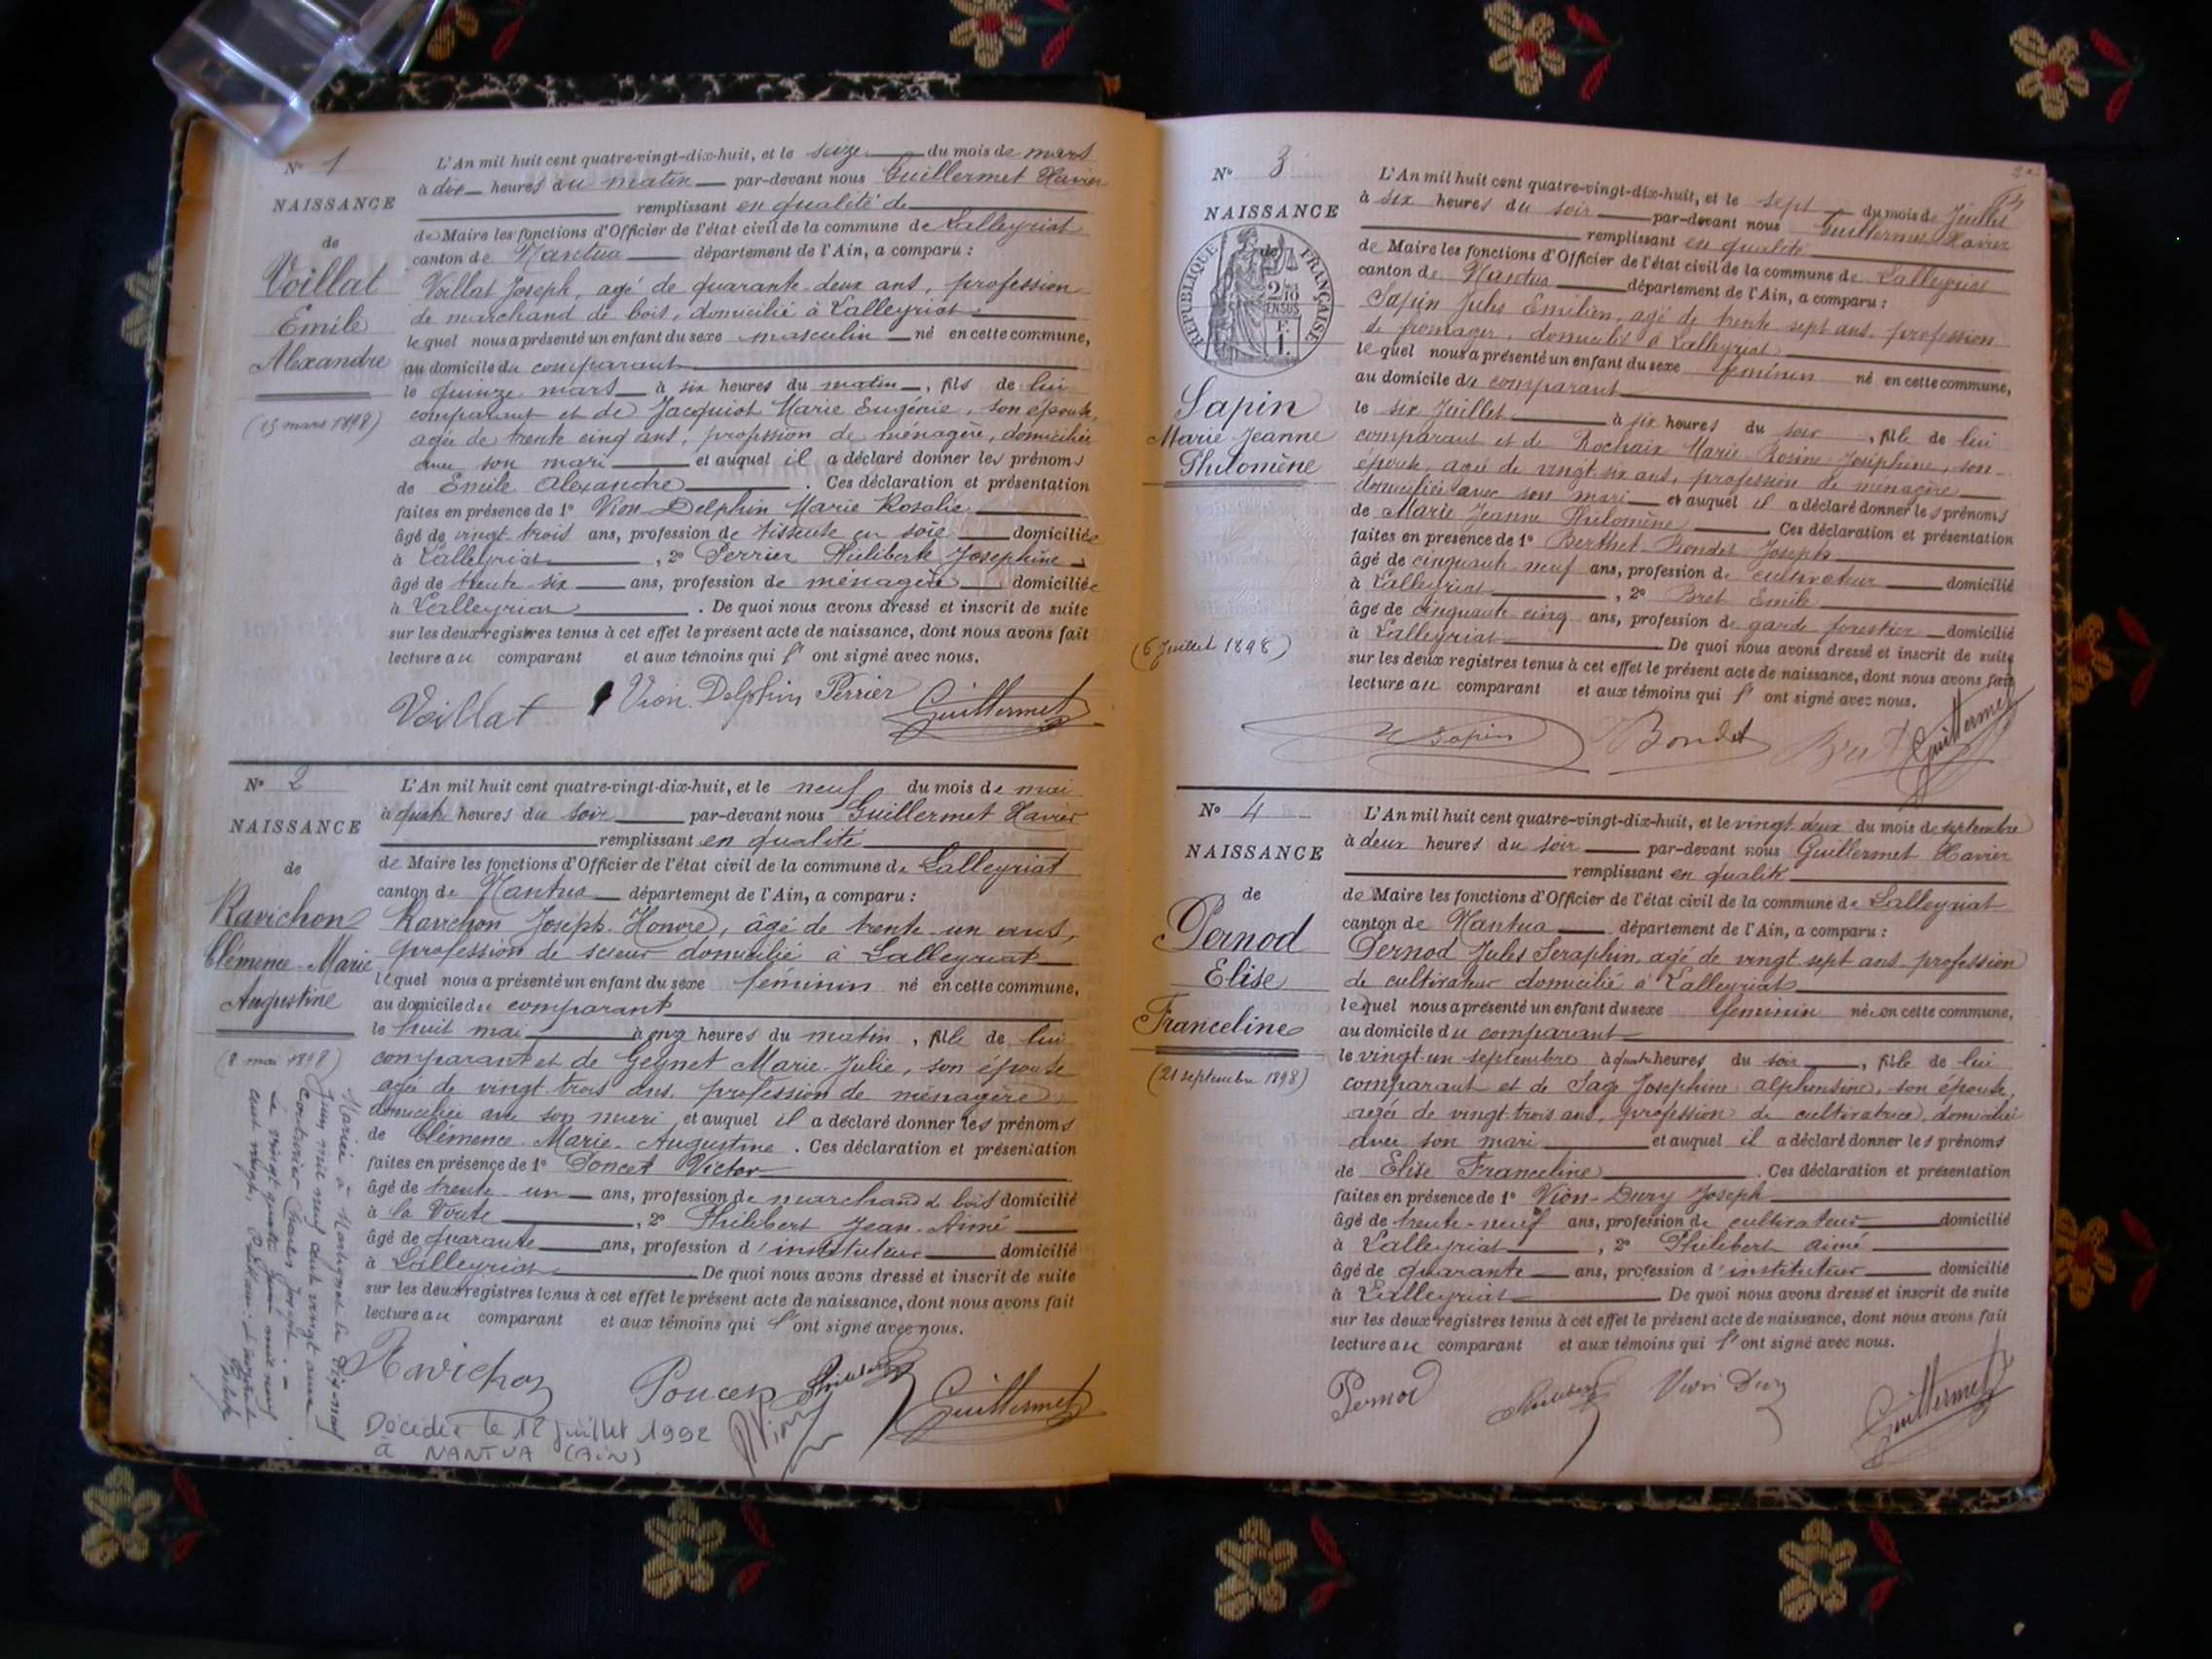 N° 1
NAISSANCE
de
Voillat
Emile
Alexandre
(15 mars 1898)
L'An mil huit cent quatre-vingt-dix-huit, et le seize du mois de mars
à dix heures du matin par-devant nous Guillermet Xavier
remplissant en qualité de
de Maire les fonctions d'Officier de l'état civil de la commune de Lalleyriat
canton de Nantua département de l'Ain, a comparu :
Voillat Joseph, agé de quarante deux ans, profession
de marchand de bois, domicilié à Lalleyriat
lequel nous a présenté un enfant du sexe masculin né en cette commune,
au domicile du comparant
le quinze mars à six heures du matin, fils de lui
comparant et de Jacquiot Marie Eugénie, son épouse,
agée de trente cinq ans, profession de ménagère, domiciliée
avec son mari et auquel il a déclaré donner les prénoms
de Emile Alexandre. Ces déclaration et présentation
faites en présence de 1° Vion-Delphin Marie Rosalie
âgé de vingt trois ans, profession de tisseuse en soie domiciliée
à Lalleyriat, 2° Perrier Philiberte Josephine
âgé de trente-six ans, profession de ménagère domiciliée
à Lalleyriat. De quoi nous avons dressé et inscrit de suite
sur les deux registres tenus à cet effet le présent acte de naissance, dont nous avons fait
lecture au comparant et aux témoins qui l' ont signé avec nous.
Voillat Vion Delphin Perrier Guillermet
N° 2
NAISSANCE
de
Ravichon
Clémence Marie
Augustine
(8 mai 1898)
Mariée à Martignat le dix-neuf
Juin mil neuf cent vingt
Couturier Charles Joseph
Le vingt quatre Juin mil neuf
cent vingt
L'An mil huit cent quatre-vingt-dix-huit, et le neuf du mois de mai
à quatre heures du soir par-devant nous Guillermet Xavier
remplissant en qualité
de Maire les fonctions d'Officier de l'état civil de la commune de Lalleyriat
canton de Nantua département de l'Ain, a comparu :
Ravichon Joseph Honoré, âgé de trente un ans,
profession de scieur domicilié à Lalleyriat
lequel nous a présenté un enfant du sexe féminin né en cette commune,
au domicile du comparant
le huit mai à onze heures du matin, fille de lui
comparant et de Geynet Marie Julie, son épouse
agée de vingt trois ans, profession de ménagère
domiciliée avec son mari et auquel il a déclaré donner les prénoms
de Clémence Marie Augustine. Ces déclaration et présentation
faites en présence de 1° Poncet Victor
âgé de trente un ans, profession de marchand de bois domicilié
à la Voute, 2° Philibert Jean Aimé
âgé de quarante ans, profession d'instituteur domicilié
à Lalleyriat De quoi nous avons dressé et inscrit de suite
sur les deux registres tenus à cet effet le présent acte de naissance, dont nous avons fait
lecture au comparant et aux témoins qui l'ont signé avec nous.
Ravichon Poncet Philibert Guillermet
Décédée le 12 juillet 1992
à NANTUA (Ain)
N° 3
NAISSANCE
de
REPUBLIQUE FRANÇAISE
2/10 EN SUS
F. 1.
Sapin
Marie Jeanne
Philomène
(6 Juillet 1898)
L'An mil huit cent quatre-vingt-dix-huit, et le sept du mois de Juillet
à six heures du soir par-devant nous Guillermet Xavier
remplissant en qualité
de Maire les fonctions d'Officier de l'état civil de la commune de Lalleyriat
canton de Nantua département de l'Ain, a comparu :
Sapin Jules Emilien, agé de trente sept ans, profession
de fromager, domicilié à Lalleyriat
lequel nous a présenté un enfant du sexe féminin né en cette commune,
au domicile du comparant
le six Juillet à six heures du soir, fille de lui
comparant et de Rochaix Marie Rosine Joséphine, son
épouse, agée de vingt six ans, profession de ménagère
domiciliée avec son mari et auquel il a déclaré donner les prénoms
de Marie Jeanne Philomène Ces déclaration et présentation
faites en présence de 1° Berthet-Bondet Joseph
âgé de cinquante neuf ans, profession de cultivateur domicilié
à Lalleyriat, 2° Bret Emile
âgé de cinquante cinq ans, profession de garde forestier domicilié
à Lalleyriat De quoi nous avons dressé et inscrit de suite
sur les deux registres tenus à cet effet le présent acte de naissance, dont nous avons fait
lecture au comparant et aux témoins qui l' ont signé avec nous.
Sapin Bondet Bret Guillermet
N° 4
NAISSANCE
de
Pernod
Elise
Franceline
(21 septembre 1898)
L'An mil huit cent quatre-vingt-dix-huit, et le vingt deux du mois de septembre
à deux heures du soir par-devant nous Guillermet Xavier
remplissant en qualité
de Maire les fonctions d'Officier de l'état civil de la commune de Lalleyriat
canton de Nantua département de l'Ain, a comparu :
Pernod Jules Seraphin, agé de vingt sept ans profession
de cultivateur domicilié à Lalleyriat
lequel nous a présenté un enfant du sexe féminin né en cette commune,
au domicile du comparant
le vingt-un septembre à quatre heures du soir, fille de lui
comparant et de Sage Josephine alphonsine, son épouse,
agée de vingt-trois ans, profession de cultivatrice, domiciliée
avec son mari et auquel il a déclaré donner les prénoms
de Elise Franceline. Ces déclaration et présentation
faites en présence de 1° Vion-Dury Joseph
âgé de trente-neuf ans, profession de cultivateur domicilié
à Lalleyriat, 2° Philibert aimé
âgé de quarante ans, profession d'instituteur domicilié
à Lalleyriat De quoi nous avons dressé et inscrit de suite
sur les deux registres tenus à cet effet le présent acte de naissance, dont nous avons fait
lecture au comparant et aux témoins qui l' ont signé avec nous.
Pernod Philibert Vion Dury Guillermet